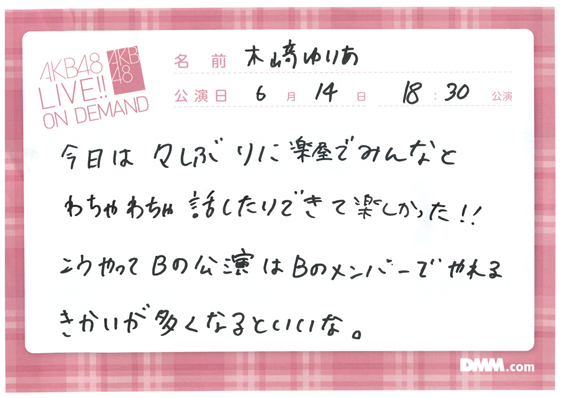 AKB48
LIVE!!
ON DEMAND
AKB
48
名前 木﨑ゆりあ
公演日 6月14日 18:30公演
今日は 久しぶりに楽屋でみんなと
わちゃわちゃ 話したりできて楽しかった!!
こうやって Bの公演はBのメンバーでやれる
きかいが多くなるといいな。
DMM.com